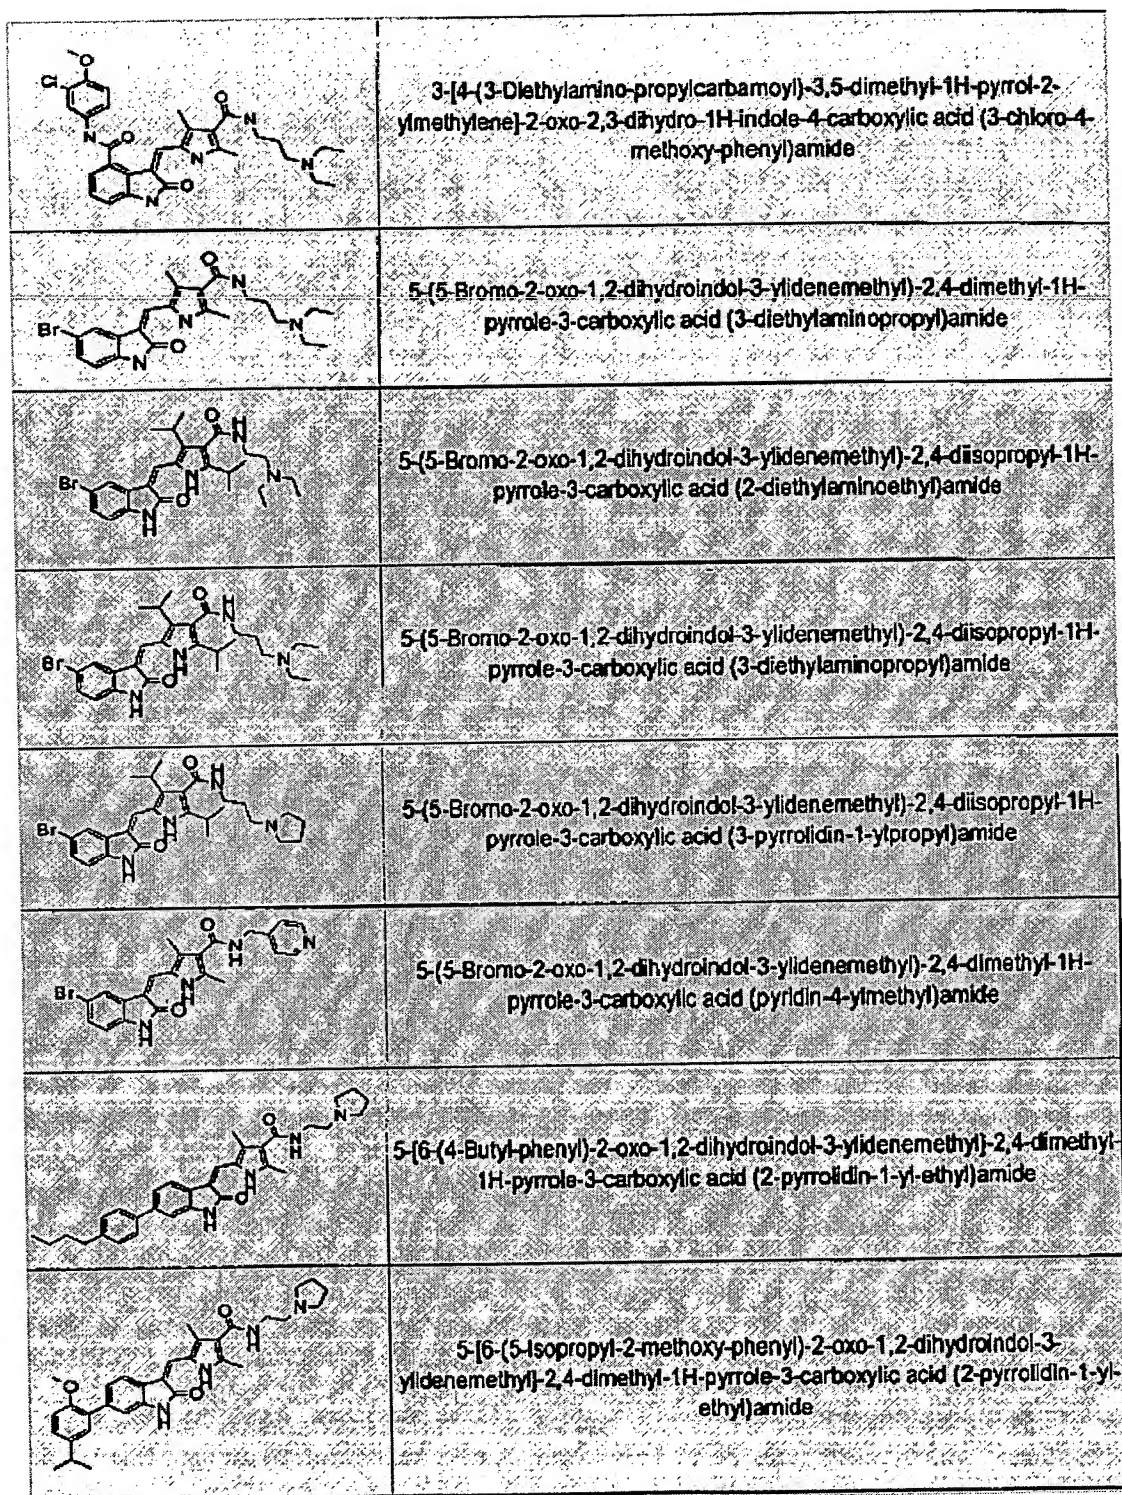 3-[4-(3-Diethylamino-propylcarbamoyl)-3,5-dimethyl-1H-pyrrol-2-
ylmethylene]-2-oxo-2,3-dihydro-1H-indole-4-carboxylic acid (3-chloro-4-
methoxy-phenyl)amide
O
Cl
O
N
O
O
N
N
N
O
N
5-(5-Bromo-2-oxo-1,2-dihydroindol-3-ylidenemethyl)-2,4-dimethyl-1H-
pyrrole-3-carboxylic acid (3-diethylaminopropyl)amide
O
N
N
Br
N
O
N
5-(5-Bromo-2-oxo-1,2-dihydroindol-3-ylidenemethyl)-2,4-diisopropyl-1H-
pyrrole-3-carboxylic acid (2-diethylaminoethyl)amide
O
H
N
N
Br
N
H
O
N
H
5-(5-Bromo-2-oxo-1,2-dihydroindol-3-ylidenemethyl)-2,4-diisopropyl-1H-
pyrrole-3-carboxylic acid (3-diethylaminopropyl)amide
O
H
N
N
Br
N
H
O
N
H
5-(5-Bromo-2-oxo-1,2-dihydroindol-3-ylidenemethyl)-2,4-diisopropyl-1H-
pyrrole-3-carboxylic acid (3-pyrrolidin-1-ylpropyl)amide
O
H
N
N
Br
N
H
O
N
H
5-(5-Bromo-2-oxo-1,2-dihydroindol-3-ylidenemethyl)-2,4-dimethyl-1H-
pyrrole-3-carboxylic acid (pyridin-4-ylmethyl)amide
O
N
H
N
Br
N
H
O
N
H
5-[6-(4-Butyl-phenyl)-2-oxo-1,2-dihydroindol-3-ylidenemethyl]-2,4-dimethyl-
1H-pyrrole-3-carboxylic acid (2-pyrrolidin-1-yl-ethyl)amide
N
O
N
H
N
H
O
N
H
5-[6-(5-Isopropyl-2-methoxy-phenyl)-2-oxo-1,2-dihydroindol-3-
ylidenemethyl]-2,4-dimethyl-1H-pyrrole-3-carboxylic acid (2-pyrrolidin-1-yl-
ethyl)amide
N
O
N
H
N
H
O
O
N
H